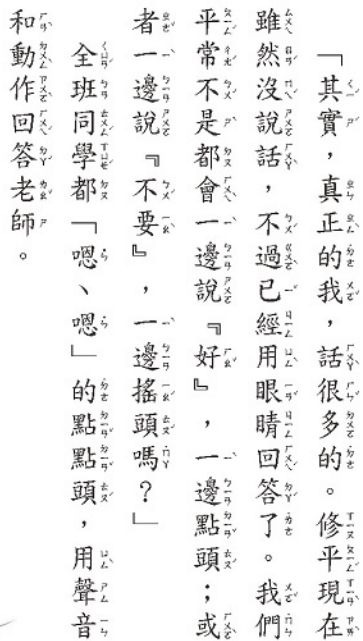 「其實，真正的我，話很多的。修平現在
雖然沒說話，不過已經用眼睛回答了。我們
平常不是都會一邊說『好』，一邊點頭；或
者一邊說『不要』，一邊搖頭嗎？」
全班同學都「嗯、嗯」的點點頭，用聲音
和動作回答老師。